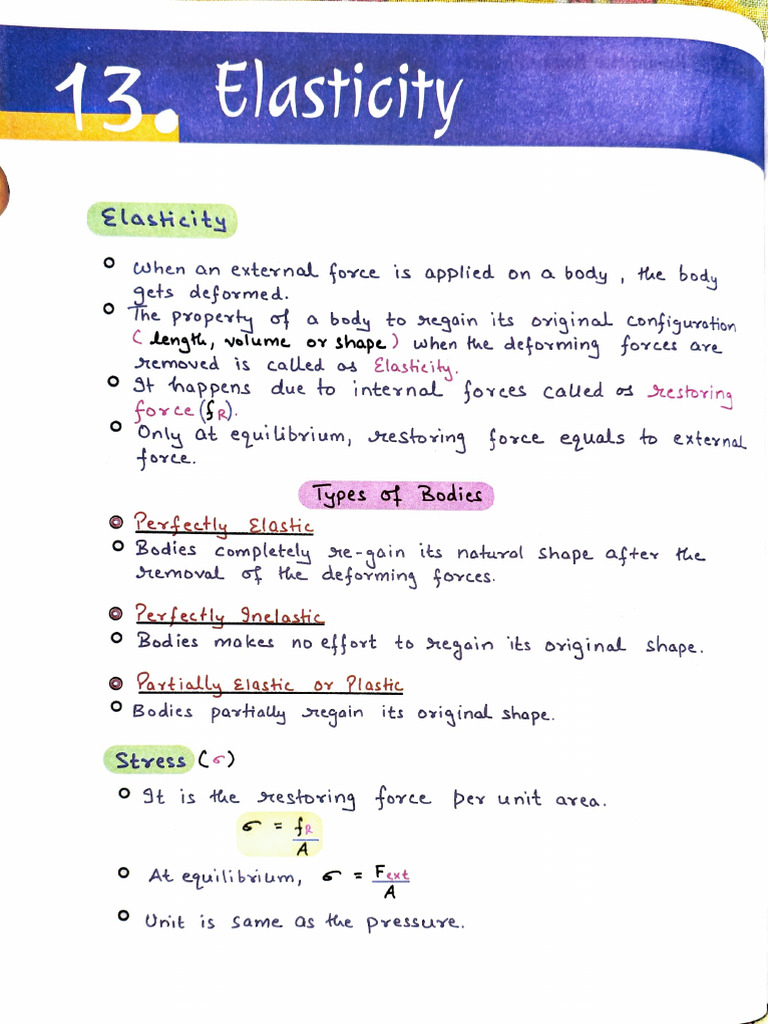 13. Elasticity
Elasticity
When an external force is applied on a body, the body
gets deformed.
The property of a body to regain its original configuration
(length, volume or shape) when the deforming forces are
removed is called as Elasticity.
It happens due to internal forces called as restoring
force (fR).
Only at equilibrium, restoring force equals to external
force.
Types of Bodies
Perfectly Elastic
Bodies completely re-gain its natural shape after the
removal of the deforming forces.
Perfectly Inelastic
Bodies makes no effort to regain its original shape.
Partially Elastic or Plastic
Bodies partially regain its original shape.
Stress (σ)
It is the restoring force per unit area.
σ = fR/A
At equilibrium, σ = Fext/A
Unit is same as the pressure.